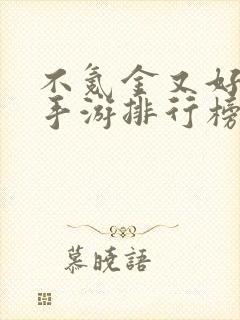 不氪金又好
手游排行榜
慕晓語